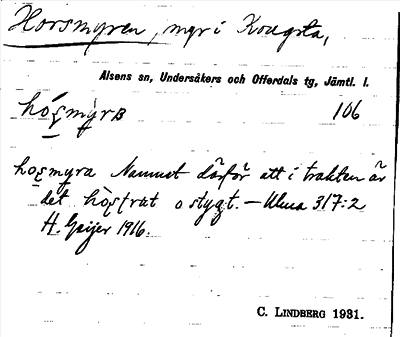 Horsmyren, myr i Kougsta,
Alsens sn, Undersåkers och Offerdals tg, Jämtl. l.
106
Namnet därför att i trakten är
det o stygt. – Ulma 317:2
H. Geijer 1916.
C. LINDBERG 1931.